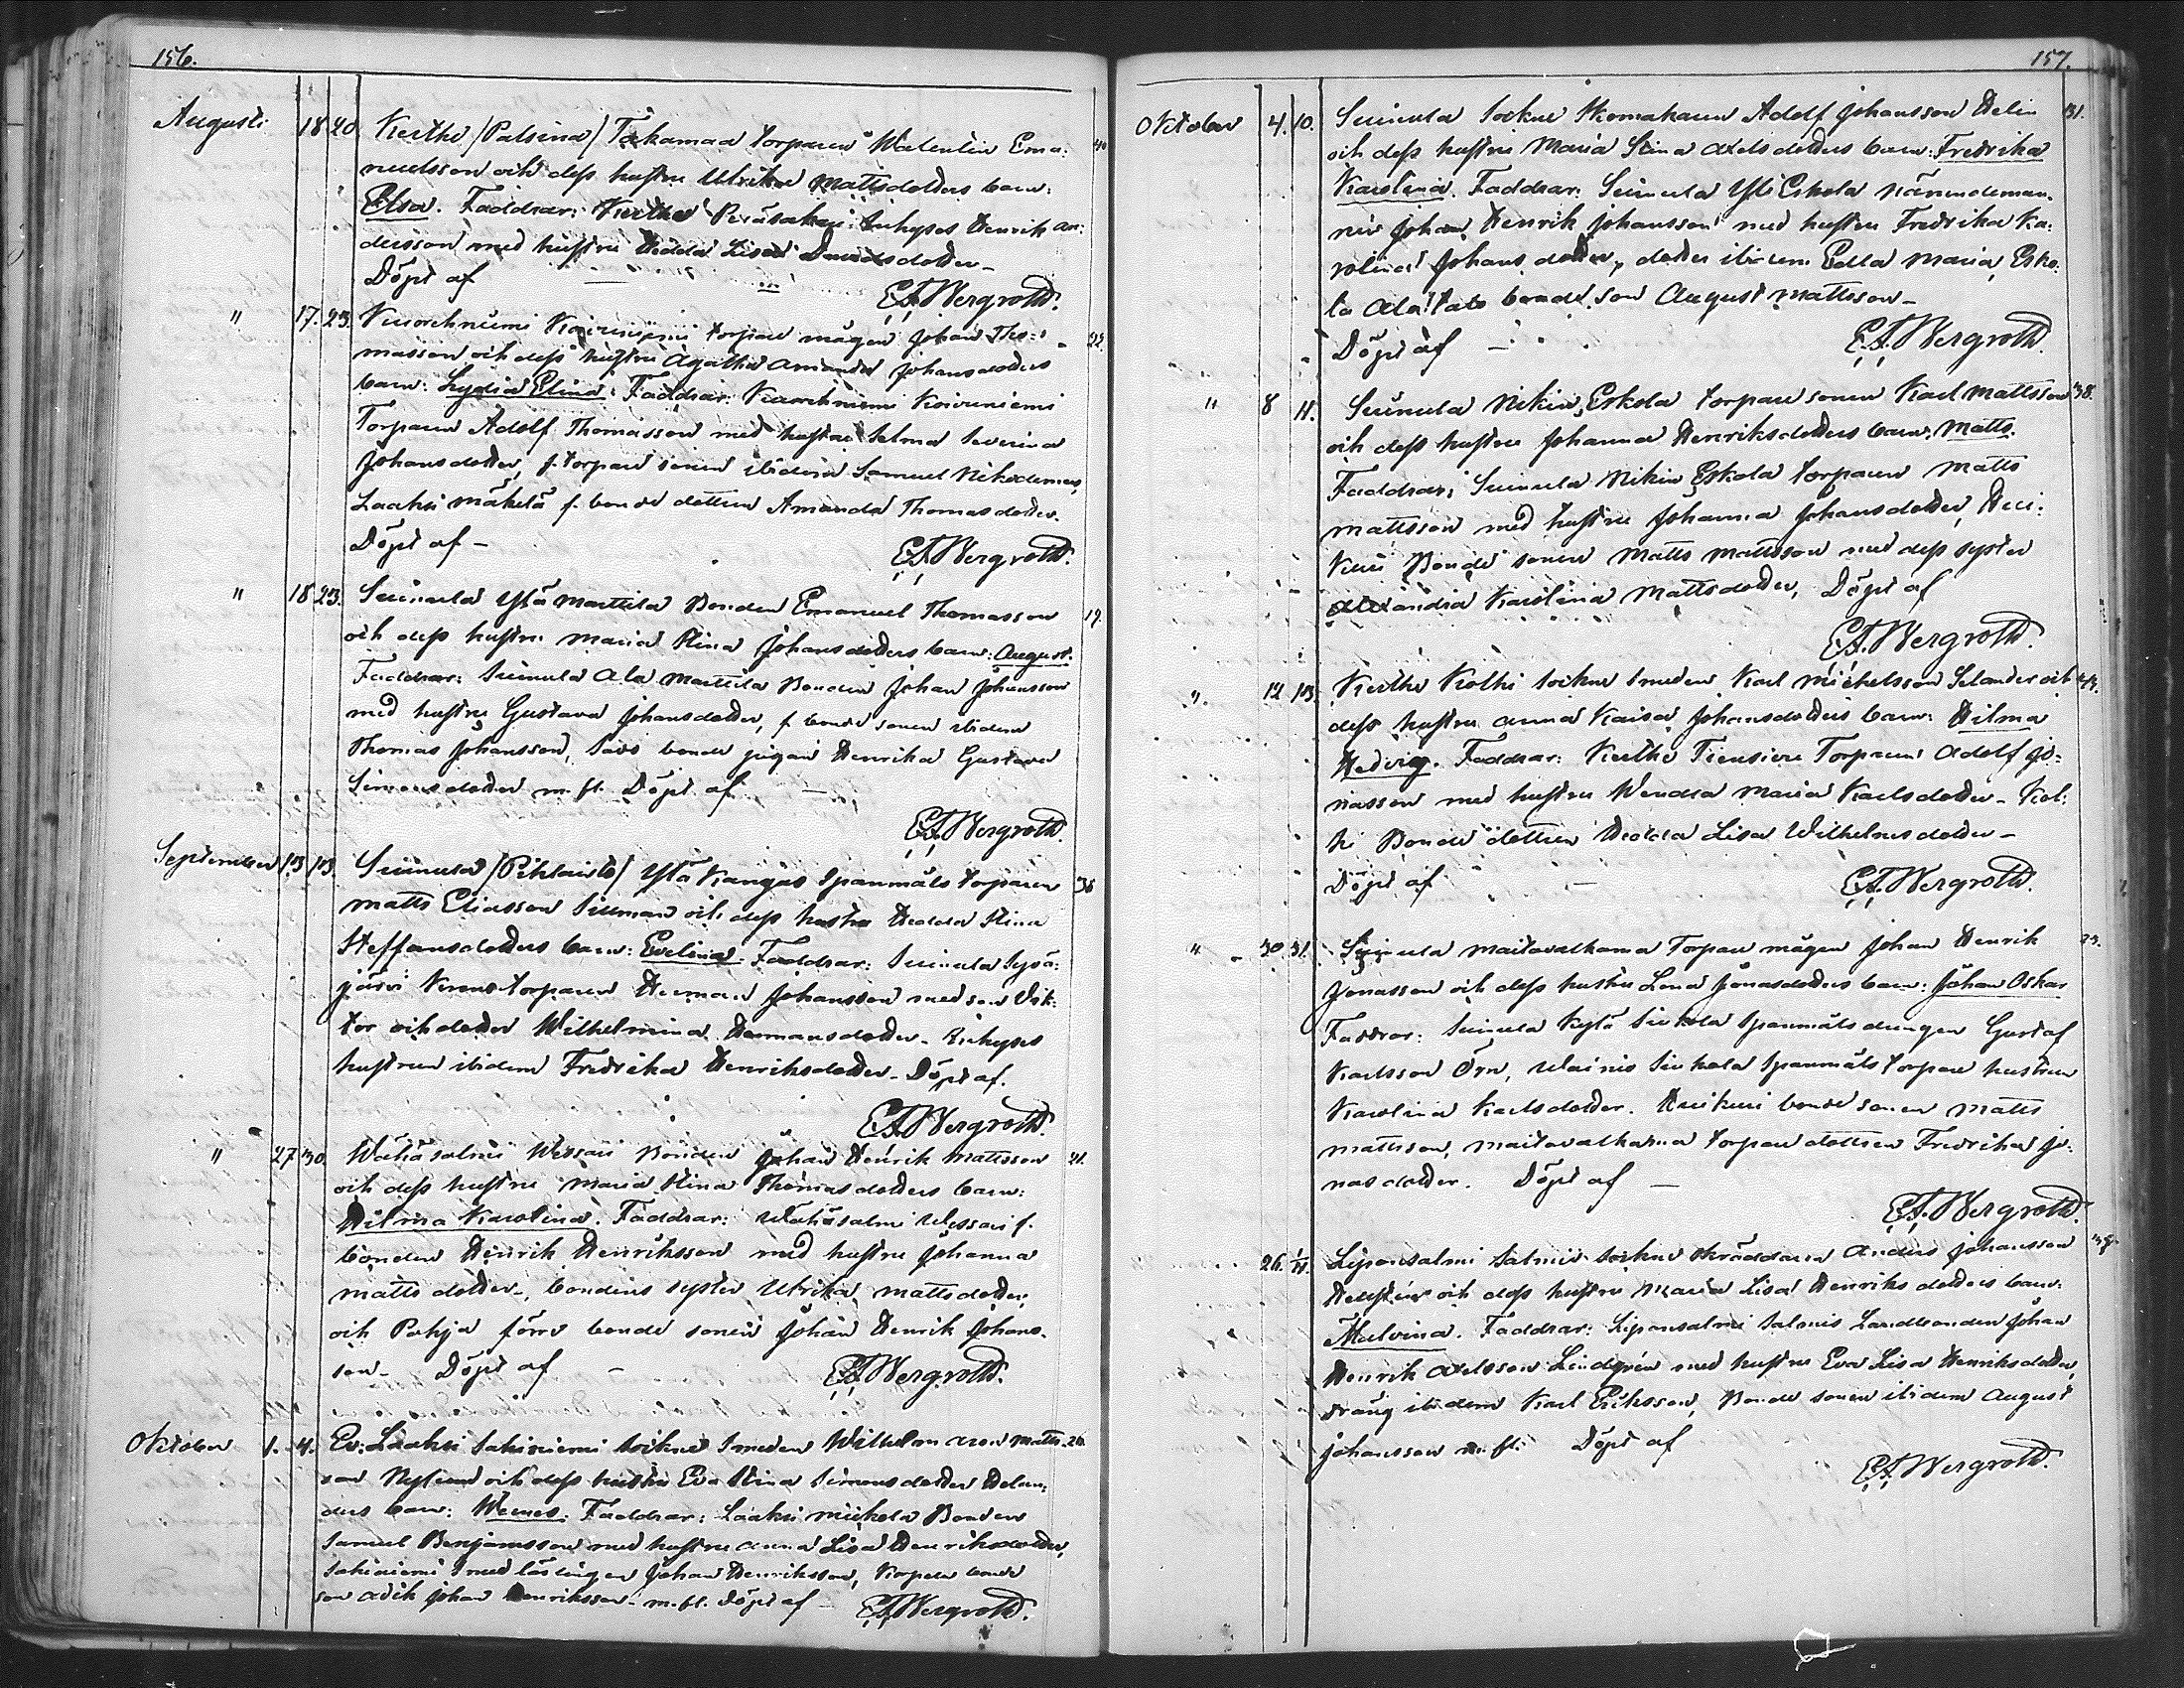 156.
Augusti 18 20. Kerttu /Palsina/ Takamaa torparen Walentin Ema- 40
nuelsson och dess hustru Ulrika Mattsdotters barn:
Elsa. Faddrar: Kerttu Peräsakari Inhyses Henrik An-
dersson med hustru Hedda Lisa Davidsdotter –
Döpt af – E.A. Bergroth.
" 17. 23. Kuorehniemi Koivuniemi torpare mågen Johan Tho- 22.
masson och dess hustru Agatha Amanda Johansdotters
barn: Lydia Elina. Faddrar: Kuorehniemi Koivuniemi
Torparen Adolf Thomasson med hustru Selma Severina
Johansdotter, f. torpare sonen ibidem Samuel Nikodemus,
Laaksi Mäkelä f. bonde dottren Amanda Thomasdotter.
Döpt af – E.A. Bergroth.
" 18 23. Suinula Ylä Marttila Bonden Emanuel Thomasson 19.
och dess hustru Maria Stina Johansdotters barn: August.
Faddrar: Suinula Ala Marttila Bonden Johan Johansson
med hustru Gustava Johansdotter, f. bonde sonen ibidem
Thomas Johansson, bonde pigan Henrika Gustava
Simonsdotter m. fl. Döpt af –
E.A. Bergroth.
September 13 13. Suinula /Pihlaisto/ Ylä Kangas Spanmåls torparen 36
Matts Eliasson Sillman och dess hustru Hedda Stina
Steffansdotters barn: Evelina. Faddrar: Suinula Syvä-
järvi torparen Herman Johansson med son Vik-
tor och dotter Wilhelmina Hermansdotter – Inhyses
hustrun ibidem Fredrika Henriksdotter – Döpt af.
E.A. Bergroth.
" 27 30. Wähäsalmi Wessari Bonden Johan Henrik Mattsson 21.
och dess hustru Maria Stina Thomasdotters barn:
Hilma Karolina. Faddrar: Wähäsalmi Wessari f.
bonden Henrik Henriksson med hustru Johanna
Mattsdotter –, bondens syster Ulrika Mattsdotter,
och Pohja förre bonde sonen Johan Henrik Johans-
son – Döpt af – E.A. Bergroth.
Oktober 1. 4. Ev: Laaksi Sahiniemi sockne smeden Wilhelm Aron Matts- 26.
son Nylund och dess hustru Eva Stina Simonsdotter Helan-
ders barn: Werner. Faddrar: Laaksi Mickola Bonden
Samuel Benjamsson med hustru Anna Lisa Henriksdotter,
Sahiniemi smed lärlingen Johan Henriksson, Korpela bonde
son Johan Henriksson – m. fl. Döpt af – E.A. Bergroth.
157.
Oktober 4. 10. Suinula sockne skomakaren Adolf Johansson Helin 31.
och dess hustru Maria Stina Axelsdotters barn: Fredrika
Karolina. Faddrar: Suinula Yli Eskola nämndeman-
nen Johan Henrik Johansson med hustru Fredrika Ka-
rolina Johansdotter, dotter ibidem Edla Maria, Esko-
la Alatalo bonde son August Mattsson –
Döpt af – E.A. Bergroth.
" 8 11. Suinula Nikin Eskola torpare sonen Karl Mattsson 38.
och dess hustru Johanna Henriksdotters barn: Matts.
Faddrar: Suinula Nikin Eskola torparen Matts
Mattsson med hustru Johanna Johansdotter, Hei-
kuri Bonde sonen Matts Mattsson med dess syster
Alexandra Karolina Mattsdotter, Döpt af
E.A. Bergroth.
". 12 13. Kerttu Kolhi sockne smeden Karl Michelsson Selander och 44.
dess hustru Anna Kaisa Johansdotters barn: Hilma
Hedvig. Faddrar: Kerttu Tiensivu Torparen Adolf Jo-
nasson med hustru Wendla Maria Karlsdotter – Kol-
hi Bonde dottren Hedda Lisa Wilhelmsdotter –
Döpt af – E.A. Bergroth.
" 30. 31. Suinula Maitovalkama Torpare mågen Johan Henrik 23.
Jonasson och dess hustru Lena Jonasdotters barn: Johan Oskar
Faddrar: Suinula Kylä Siukola Spanmåls drengen Gustaf
Karlsson Örn, Wainio Siukola Spanmåls torpare hustrun
Karolina Karlsdotter. Heikuri bonde sonen Matts
Mattsson, Maitovalkama torpare dottren Fredrika Jo-
nasdotter. Döpt af –
E.A. Bergroth.
26. 1/11. Liponsalmi Salmis sockne skräddaren Anders Johansson
och dess hustru Maria Lisa Henriksdotters barn:
Malvina. Faddrar: Liponsalmi Salmis Landbonden Johan
Henrik Axelsson Lindgrén med hustru Eva Lisa Henriksdotter,
dräng ibidem Karl Eriksson, Bonde sonen ibidem August
Johansson m. fl. Döpt af
E.A. Bergroth.